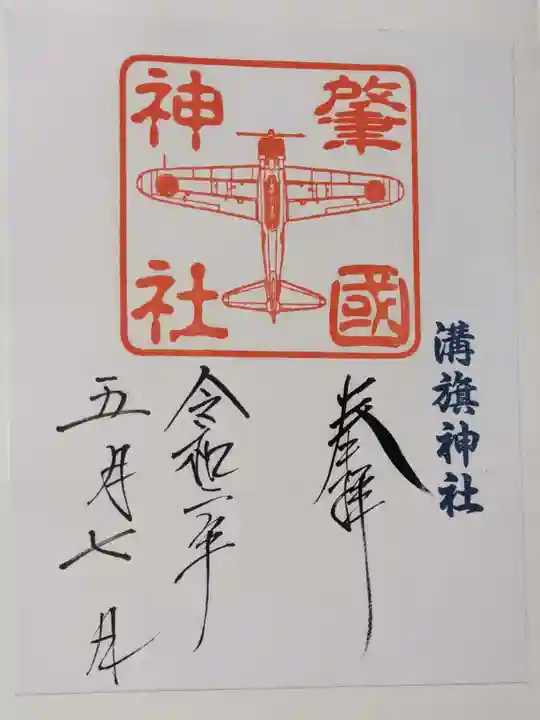 肇國
神社
溝旗神社
奉拝
令和二年
五月七日